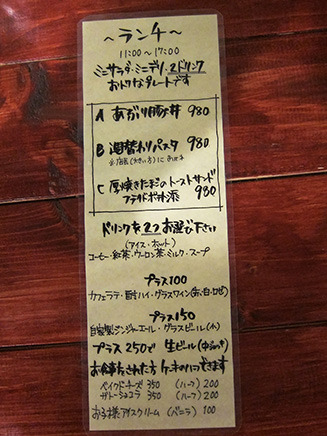 ～ランチ～
11:00～17:00
ミニサラダ・ミニデリ・2ドリンク
おトクなプレートです
A あぶり豚丼 980
B 週替わりパスタ 980
C 厚焼きたまごのトーストサンド
フライドポテト添 980
ドリンクを2つお選び下さい
(アイス・ホット)
コーヒー・紅茶・ウーロン茶・ミルク・スープ
プラス100
カフェラテ・酎ハイ・グラスワイン(赤・白・ロゼ)
プラス150
自家製ジンジャーエール・グラスビール(小)
プラス250で 生ビール(中ジョッキ)
お食事された方 ケーキのハーフできます
ベイクドチーズ 350 (ハーフ) 200
ガトーショコラ 350 (ハーフ) 200
お子様アイスクリーム (バニラ) 100